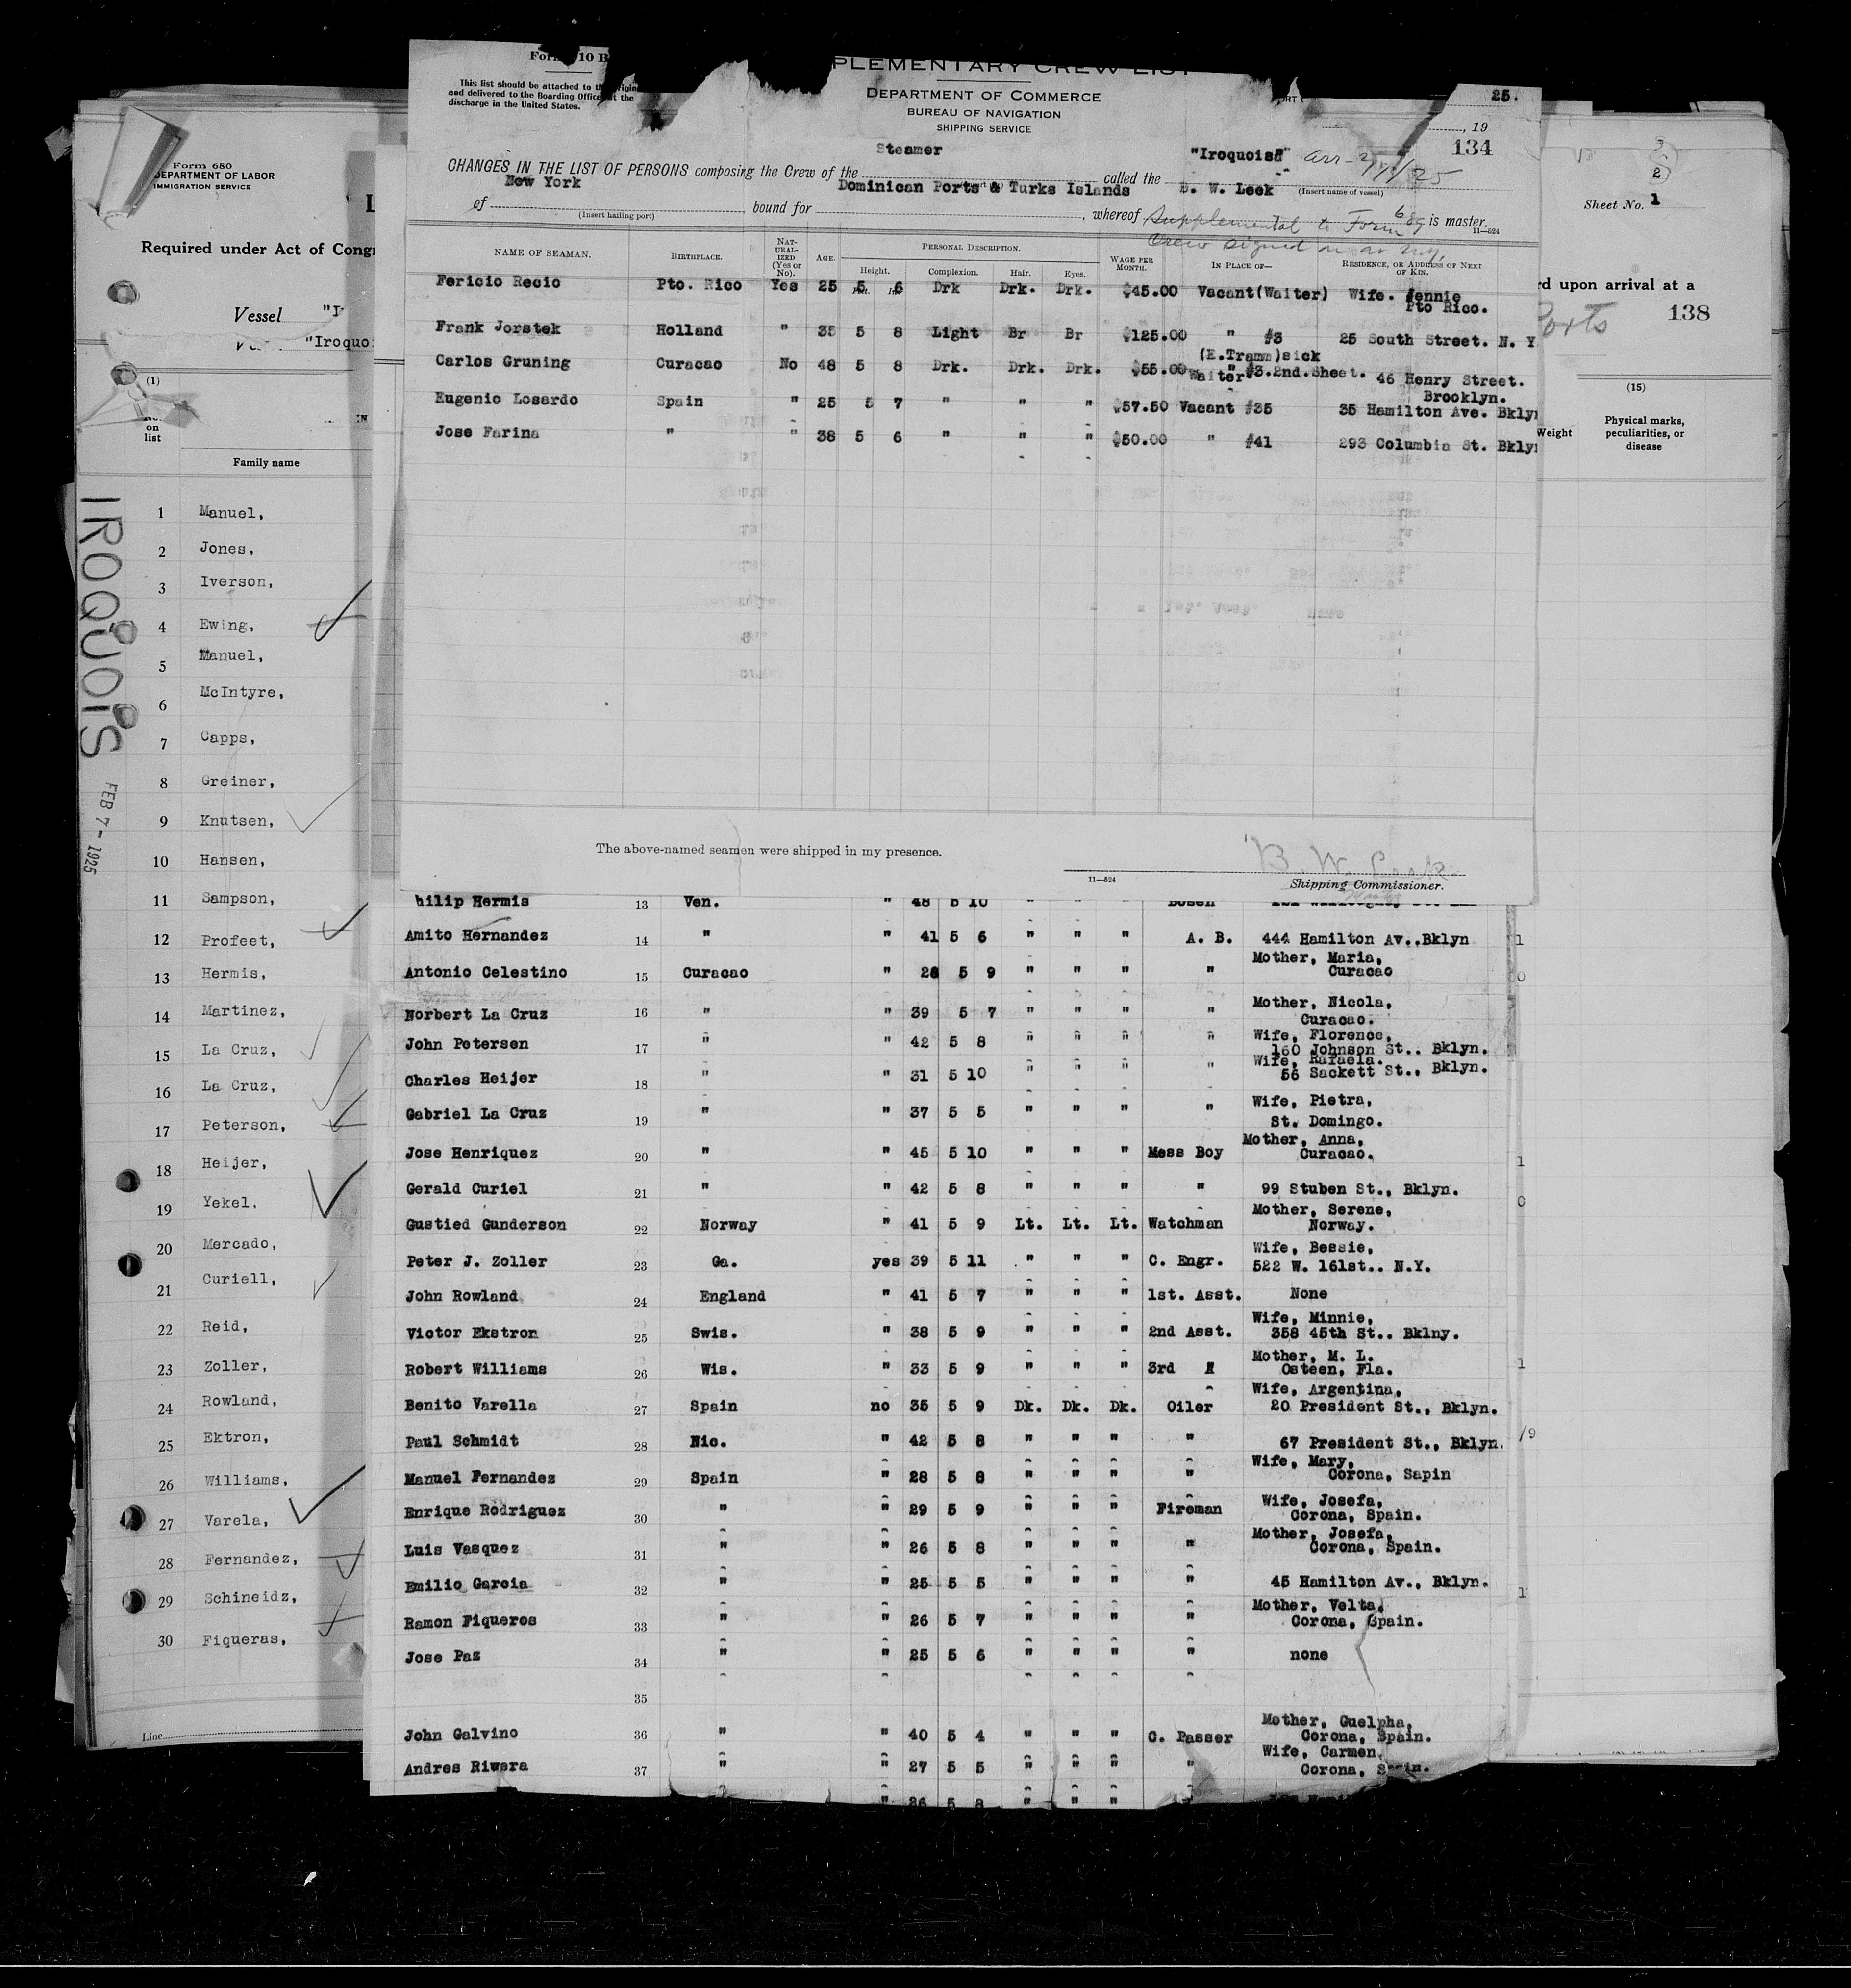 Form 680
DEPARTMENT OF LABOR
IMMIGRATION SERVICE
Required under Act of Cong
Vessel "I
"Iroquo
(1)
on
list
IN
Family name
IROQUOIS
FEB 7 - 1925
1 Manuel,
2 Jones,
3 Iverson,
4 Ewing,
5 Manuel,
6 McIntyre,
7 Capps,
8 Greiner,
9 Knutsen,
10 Hansen,
11 Sampson,
12 Profeet,
13 Hermis,
14 Martinez,
15 La Cruz,
16 La Cruz,
17 Peterson,
18 Heijer,
19 Yekel,
20 Mercado,
21 Curiell,
22 Reid,
23 Zoller,
24 Rowland,
25 Ektron,
26 Williams,
27 Varela,
28 Fernandez,
29 Schineidz,
30 Figueras,
Line
10 B
This list should be attached to the
and delivered to the Boarding Officer at the
discharge in the United States.
PLEMENTARY CREW LIST
DEPARTMENT OF COMMERCE
BUREAU OF NAVIGATION
SHIPPING SERVICE
25.
, 19
134
Steamer "Iroquois" arr-2/7/25
CHANGES IN THE LIST OF PERSONS composing the Crew of the called the
(Insert name of vessel)
New York Dominican Ports & Turks Islands B. W. Leek
of bound for , whereof is master.
(Insert hailing port)
11—524
Supplemental to Form 689
Crew signed on at N.Y.
NAME OF SEAMAN. BIRTHPLACE. NAT-URAL-IZED (Yes or No). AGE. PERSONAL DESCRIPTION. WAGE PER MONTH. IN PLACE OF— RESIDENCE, OR ADDRESS OF NEXT OF KIN.
Height. Complexion. Hair. Eyes.
Fericio Recio Pto. Rico Yes 25 5 6 Drk Drk. Drk. $45.00 Vacant(Waiter) Wife. Jennie
Pto Rico.
Frank Jorstek Holland " 35 5 8 Light Br Br $125.00 " #3 25 South Street. N. Y
(E.Tramm)sick
Carlos Gruning Curacao No 48 5 8 Drk. Drk. Drk. $55.00 Waiter" #3.2nd.Sheet. 46 Henry Street.
Brooklyn.
Eugenio Losardo Spain " 25 5 7 " " " $57.50 Vacant #35 35 Hamilton Ave. Bkly
Jose Farina " " 38 5 6 " " " $50.00 " #41 293 Columbia St. Bkly
The above-named seamen were shipped in my presence.
B. W. Leek
11—524
Shipping Commissioner.
hilip Hermis 13 Ven. " 48 5 10 " " " Bosen
Amito Hernandez 14 " " 41 5 6 " " " A. B. 444 Hamilton Av..Bklyn
Antonio Celestino 15 Curacao " 28 5 9 " Mother, Maria,
Curacao
Norbert La Cruz 16 " " 39 5 7 " Mother, Nicola,
Curacao.
John Petersen 17 " " 42 5 8 " " " " Wife, Florence,
160 Johnson St.. Bklyn.
Charles Heijer 18 " " 31 5 10 " " " " Wife, Rafaela.
56 Sackett St., Bklyn.
Gabriel La Cruz 19 " " 37 5 5 " " " " Wife, Pietra,
St. Domingo.
Jose Henriquez 20 " " 45 5 10 " " " Mess Boy Mother, Anna,
Curacao.
Gerald Curiel 21 " " 42 5 8 " " " " 99 Stuben St., Bklyn.
Gustied Gunderson 22 Norway " 41 5 9 Lt. Lt. Lt. Watchman Mother, Serene,
Norway.
Peter J. Zoller 23 Ga. yes 39 5 11 " " " C. Engr. Wife, Bessie,
522 W. 161st.. N.Y.
John Rowland 24 England " 41 5 7 " " " 1st. Asst. None
Victor Ekstron 25 Swis. " 38 5 9 " " " 2nd Asst. Wife, Minnie,
358 45th St.. Bklny.
Robert Williams 26 Wis. " 33 5 9 " " " 3rd " Mother, M. L.
Osteen, Fla.
Benito Varella 27 Spain no 35 5 9 Dk. Dk. Dk. Oiler Wife, Argentina,
20 President St., Bklyn.
Paul Schmidt 28 Nic. " 42 5 8 " " " " 67 President St., Bklyn.
Manuel Fernandez 29 Spain " 28 5 8 " " " " Wife, Mary,
Corona, Sapin
Enrique Rodriguez 30 " " 29 5 9 " " " Fireman Wife, Josefa,
Corona, Spain.
Luis Vasquez 31 " " 26 5 8 " " " " Mother, Josefa,
Corona, Spain.
Emilio Garcia 32 " " 25 5 5 " " " " 45 Hamilton Av., Bklyn.
Ramon Fiqueros 33 " " 26 5 7 " " " " Mother, Velta,
Corona, Spain.
Jose Paz 34 " " 25 5 6 " " " " none
35
John Galvino 36 " " 40 5 4 " " " C. Passer Mother, Guelpha,
Corona, Spain.
Andres Rivera 37 " " 27 5 5 " " " " Wife, Carmen,
Corona, Spain.
" 26 5 8 " " "
2
Sheet No. 1
rd upon arrival at a
Ports 138
(15)
Weight
Physical marks,
peculiarities, or
disease